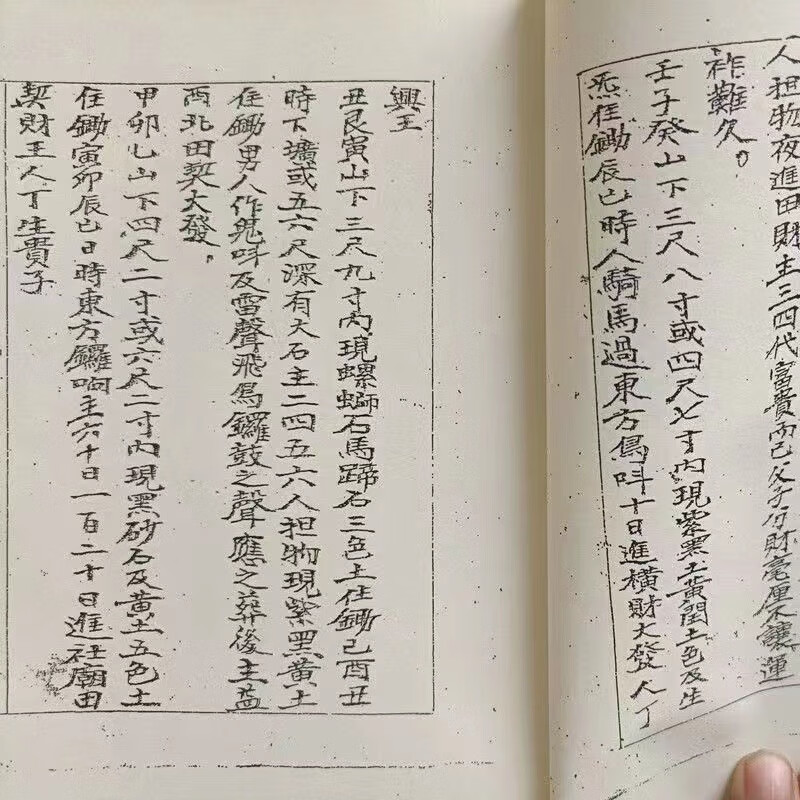 人担物夜進田財主三四代富貴而已父子分財毫厘不讓運
祚難久。
壬子癸山下三尺八寸或四尺七寸內現紫黑土黃潤土色及生
炁住鋤辰巳時人騎馬過東方鳥呌十日進橫財大發人丁
興王
丑艮寅山下三尺九寸內現螺螄石馬蹄石三色土住鋤己酉丑
時下壙或五六尺深有大石主二四五六人担物現紫黑黃土
住鋤男人作鬼呌及雷聲飛鳥鑼鼓之聲應之葬後主益
西北田契大發。
甲卯乙山下四尺二寸或六尺二寸內現黑砂石及黃土五色土
住鋤寅卯辰巳日時東方鑼响主六十日一百二十日進社廟田
契財王人丁生貴子